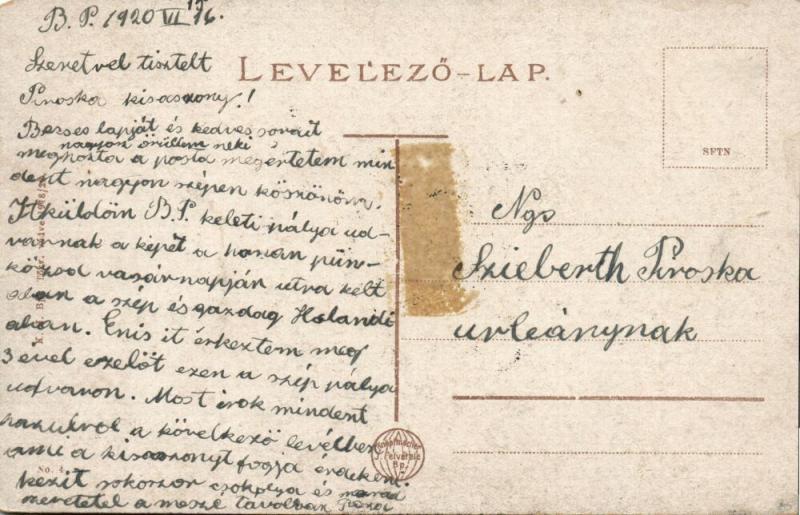 B. P. 1920 VI 16.
Szeretvel tisztelt
Piroska kisaszony!
Berses lapját és kedves sorait
nagyon örüllem neki
meghozta a posta megértetem min
dent nagyon szépen köszönöm.
It küldöin B.P. keleti pálya ud-
varnak a képét a honan pün-
kö zsd vasárnapján utra kélt
a szép és gazdag Holandi
ában. Enis it érkeztem meg
3 ével ezelöt ezen a szép pálya
udvaron. Most irok mindent
a kövelkező levélben
ami a kisaszonyt fogja érdekelni.
kezit sokszor csokolya és marad
szeretetel a meszé távolban
LEVELEZŐ-LAP.
SFTN
Ngs
Szieberth Piroska
urleánynak
No. 4.
J. Felvétele
Bp.